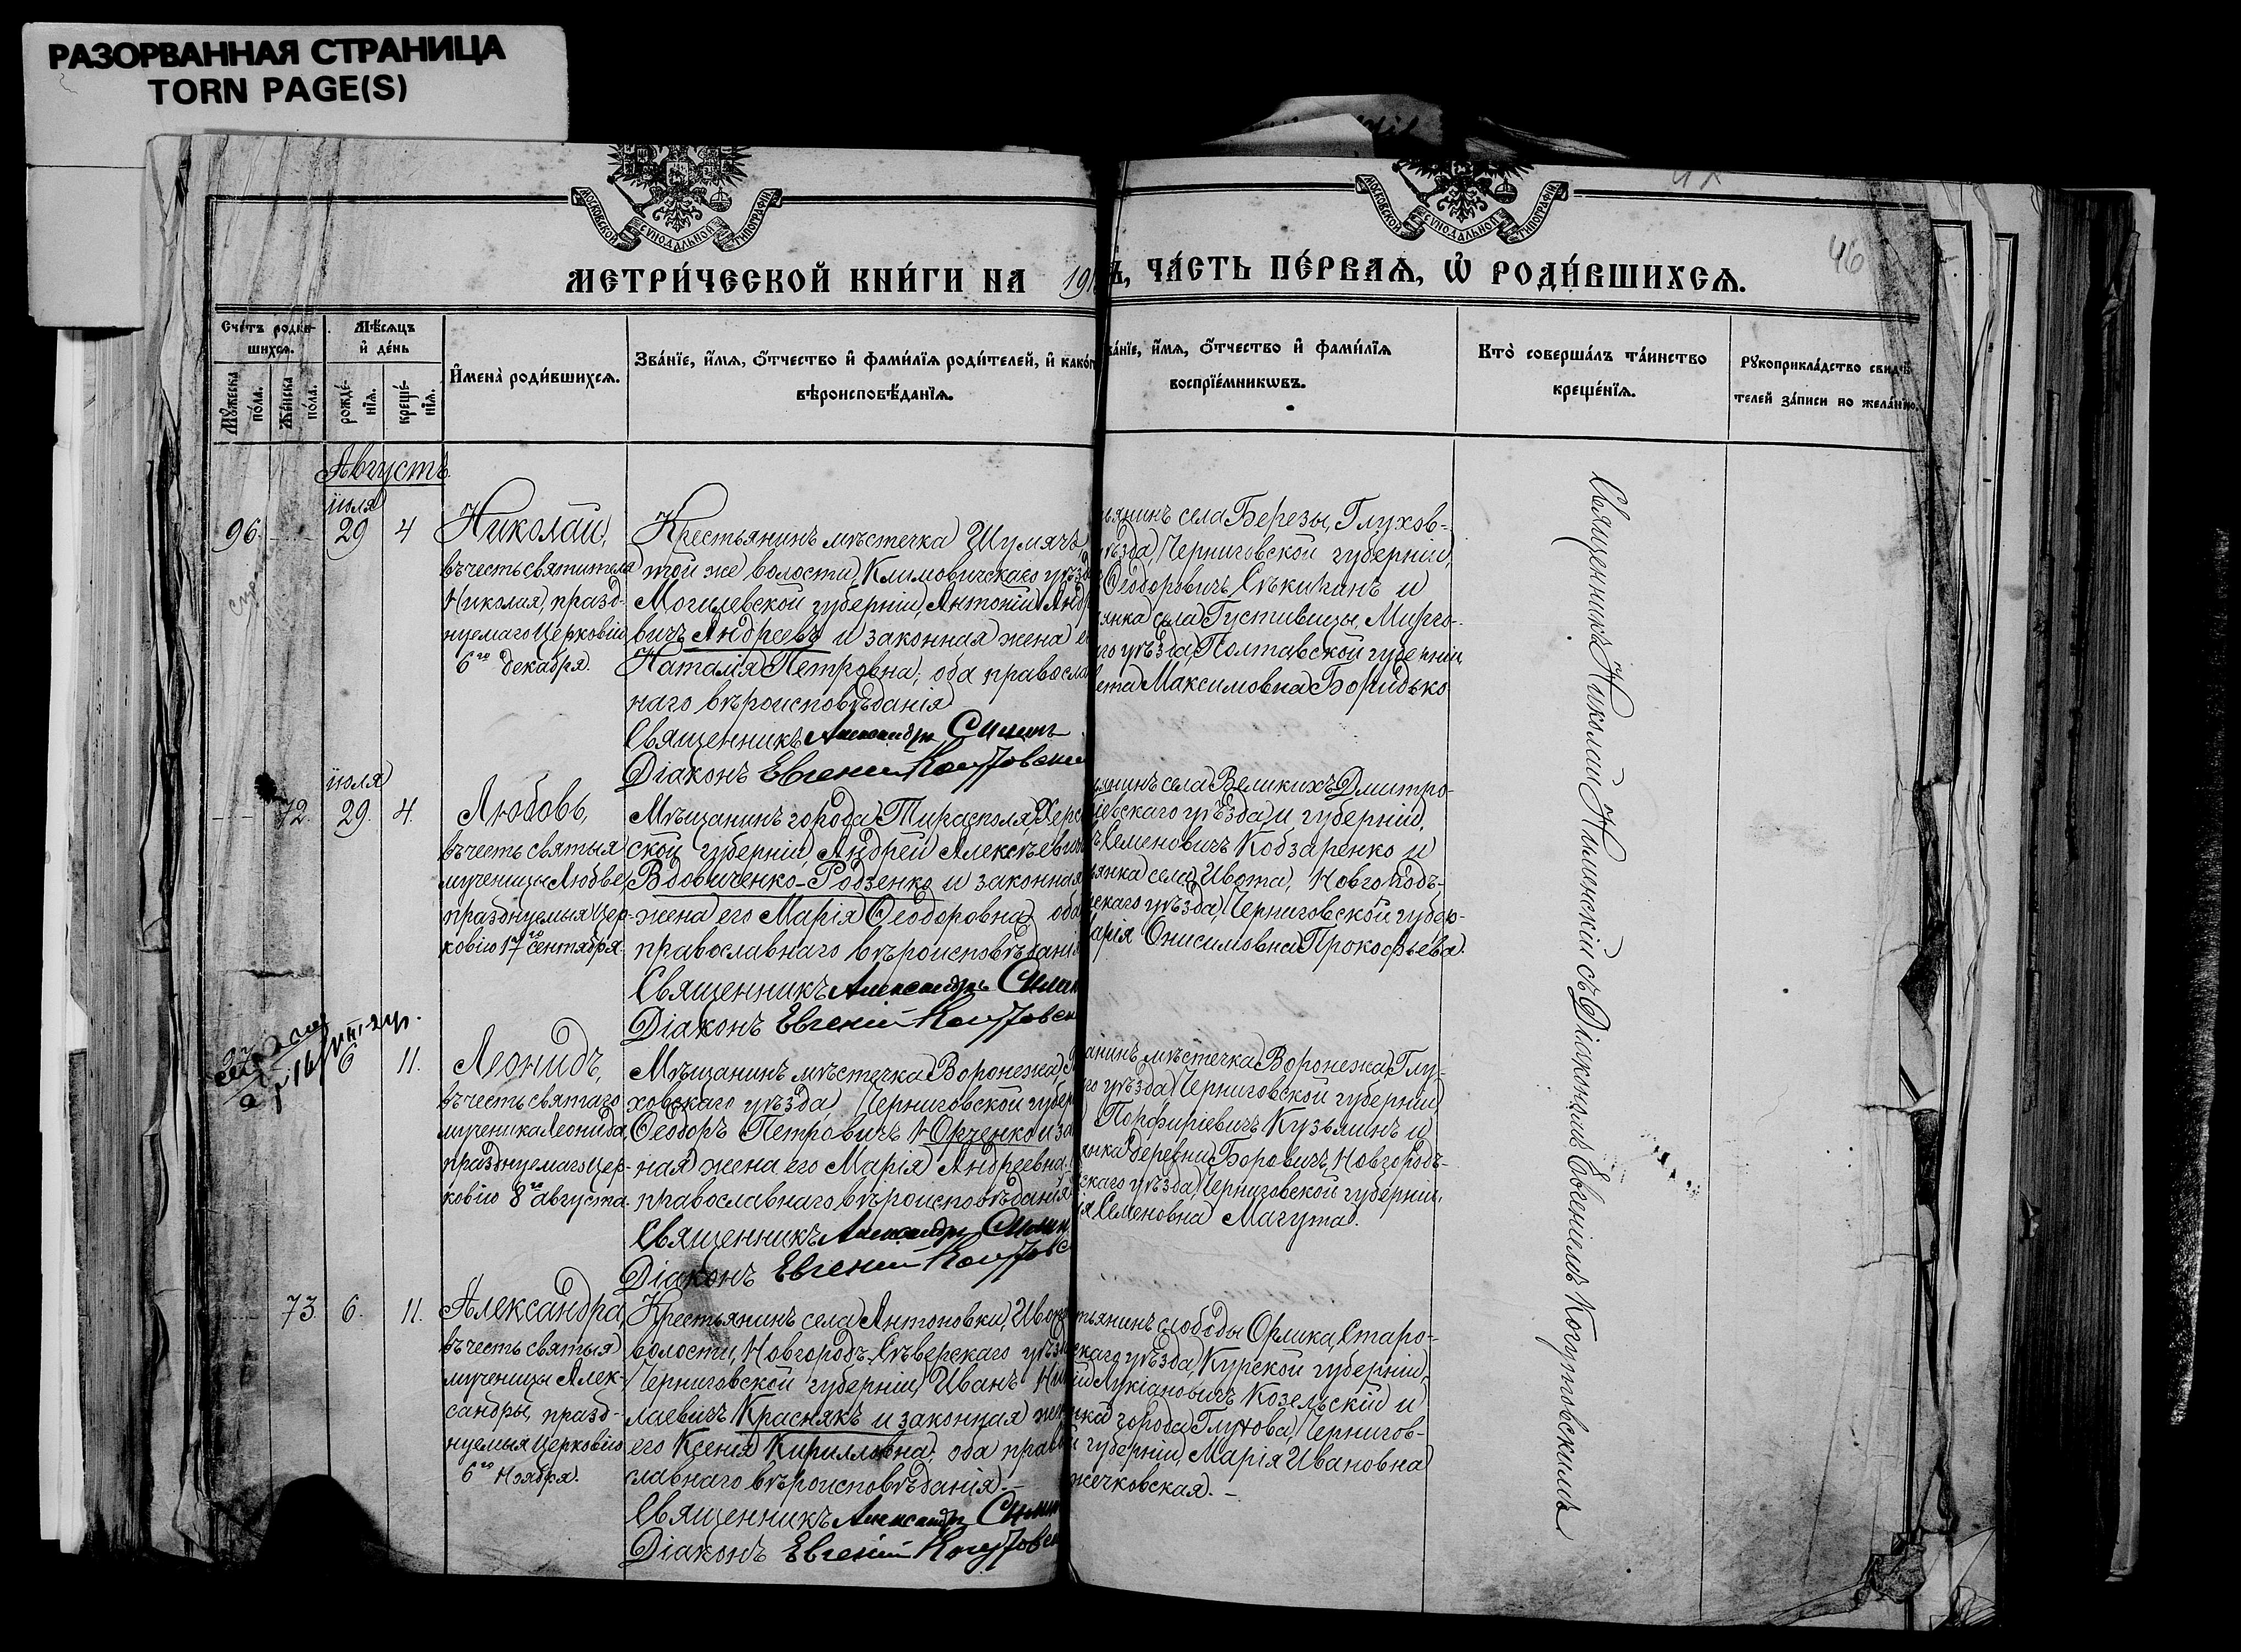 РАЗОРВАННАЯ СТРАНИЦА
TORN PAGE(S)
МОСКОВСКОЙ СѴНОДАЛЬНОЙ ТИПОГРАФІИ
МОСКОВСКОЙ СѴНОДАЛЬНОЙ ТИПОГРАФІИ
46
МЕТРИ́ЧЕСКОЙ КНИ́ГИ НА 191
Ъ, ЧА́СТЬ ПЕ́РВАѦ, Ѡ РОДИ́ВШИХСѦ.
Сче́тъ роди́вшихсѧ.
Мꙋ́жеска по́ла.
Же́нска по́ла.
Мѣ́сѧцъ и де́нь
рожде́нїѧ.
креще́нїѧ.
Имена̀ роди́вшихсѧ.
Зва́нїе, и́мѧ, ѻ́тчество и фами́лїѧ роди́телей, и како́г
вѣроисповѣ́данїѧ.
ва́нїе, и́мѧ, ѻ́тчество и фами́лїѧ
воспрїе́мникѡвъ.
Кто̀ соверша́лъ та́инство
креще́нїѧ.
Рꙋкоприкла́дство свидѣ́
телей за́писи по жела́нїю.
Августъ.
іюля
96. 29 4
Николай,
въ честь святителя
Николая, празд-
нуемаго Церковію
6го декабря.
Крестьянинъ мѣстечка Шумячъ,
той же волости, Климовичскаго уѣзд
Могилевской губерніи, Антоній Андр
вичъ Андреевъ и законная жена е
Наталія Петровна; оба правосла
наго вѣроисповѣданія
Священникъ Александръ
Діаконъ Евгеній
ьянинъ села Березы, Глухов-
уѣзда, Черниговской губерніи,
Ѳеодоровичъ и
янка села Густивицы, Мирго-
го уѣзда, Полтавской губерніи,
ета Максимовна Боридько
іюля
72. 29. 4.
Любовь,
въ честь святыя
мученицы Любве,
празднуемыя Цер-
ковію 17го сентября.
Мѣщанинъ города Тирасполя, Херс
ской губерніи, Андрей Алексѣевичъ
Вдовиченко-Родзенко и законная
жена его Марія Ѳеодоровна; оба
православнаго вѣроисповѣданія
Священникъ Александръ
Діаконъ Евгеній
янинъ села Великихъ Дмитро-
іевскаго уѣзда и губерніи,
ъ Семеновичъ Кобзаренко и
янка села Ивота, Новгородъ-
скаго уѣзда, Черниговской губер-
арія Онисимовна Прокофьева.
6 11.
Леонидъ,
въ честь святаго
мученика Леонида,
празднуемаго Цер-
ковію 8го августа.
Мѣщанинъ мѣстечка Воронежа,
ховскаго уѣзда, Черниговской губер
Ѳеодоръ Петровичъ Юрченко и за
ная жена его Марія Андреевна;
православнаго вѣроисповѣданія
Священникъ Александръ
Діаконъ Евгеній
анинъ мѣстечка Воронежа, Глу-
го уѣзда, Черниговской губерніи,
Порфиріевичъ Кузьминъ и
янка деревни Боровичъ, Новгородъ-
скаго уѣзда, Черниговской губерніи,
ія Семеновна Магута.
73. 6. 11.
Александра,
въ честь святыя
мученицы Алек-
сандры, празд-
нуемыя Церковію
6го Ноября.
Крестьянинъ села Антоновки, Ивот
волости, Новгородъ-Сѣверскаго уѣзд
Черниговской губерніи, Иванъ Ни
лаевичъ Краснякъ и законная жен
его Ксенія Кирилловна; оба право
славнаго вѣроисповѣданія.—
Священникъ Александръ
Діаконъ Евгеній
тьянинъ слободы Орлика, Старо-
скаго уѣзда, Курской губерніи,
ій Лукіановичъ Козельскій и
нка города Глухова, Чернигов-
й губерніи, Марія Ивановна
жечковская.—
Священникъ Николай съ Діакономъ Евгеніемъ